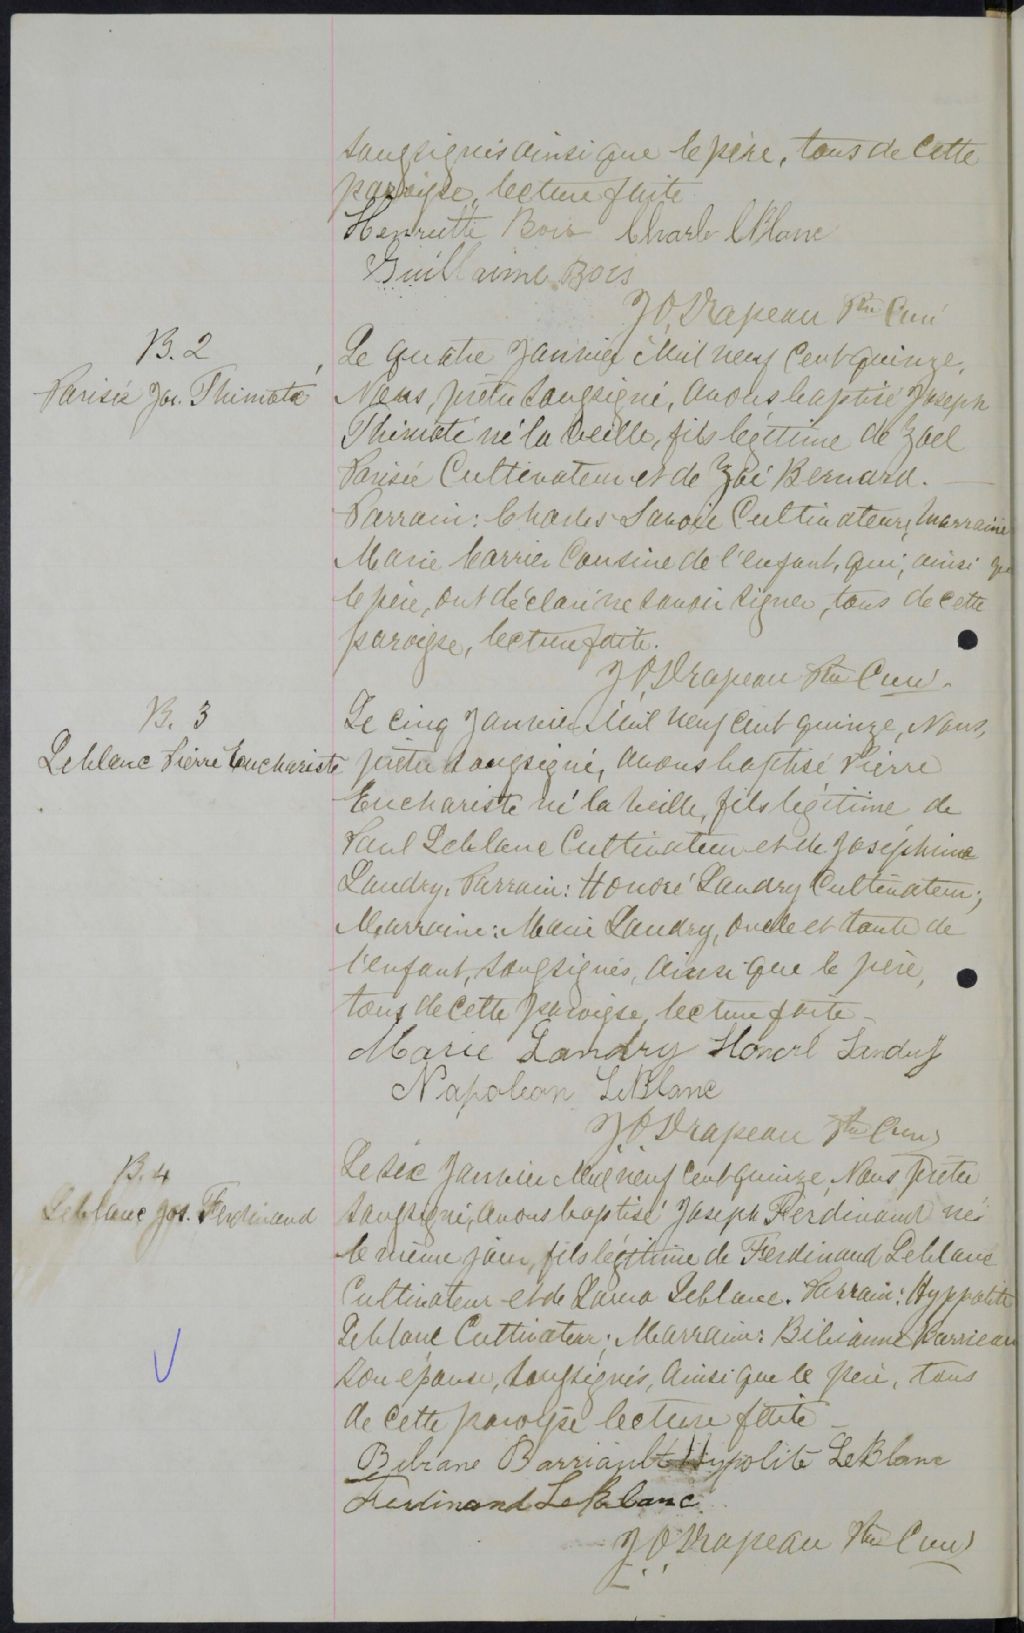 soussignés ainsi que le père, tous de cette
paroisse, lecture faite
Henriette Bois Charle LeBlanc
Guillaume Bois
J O Drapeau Ptre Curé
B. 2
Parisé Jos. Thimoté
Le quatre Janvier Mil neuf cent quinze,
Nous, prêtre soussigné, avons baptisé Joseph
Thimoté né la veille, fils légitime de Zoel
Parisé Cultivateur et de Zoé Bernard.
Parrain: Charles Savoie Cultivateur; Marraine
Marie Carrier Cousine de l'enfant, qui, ainsi que
le père, ont déclaré ne savoir signer, tous de cette
paroisse, lecture faite.
J O Drapeau Ptre Curé.
B. 3
Leblanc Pierre Euchariste
Le cinq Janvier Mil neuf cent quinze, Nous,
prêtre soussigné, avons baptisé Pierre
Euchariste né la veille, fils légitime de
Paul Leblanc Cultivateur et de Joséphine
Landry. Parrain: Honoré Landry Cultivateur;
Marraine: Marie Landry, oncle et tante de
l'enfant, soussignés, ainsi que le père,
tous de cette paroisse, lecture faite
Marie Landry Honoré Landry
Napoleon LeBlanc
J O Drapeau Ptre Curé
B. 4
Leblanc Jos. Ferdinand
Le six Janvier Mil neuf cent quinze, Nous prêtre
soussigné, avons baptisé Joseph Ferdinand né
le même jour, fils légitime de Ferdinand Leblanc
Cultivateur et de Leblanc. Parrain: Hyppolite
Leblanc Cultivateur; Marraine: Bibianne Barrieau
son épouse, soussignés, ainsi que le père, tous
de cette paroisse lecture faite
Bibiane Barriault Hypolite LeBlanc
Ferdinand LeBlanc
J O Drapeau Ptre Curé